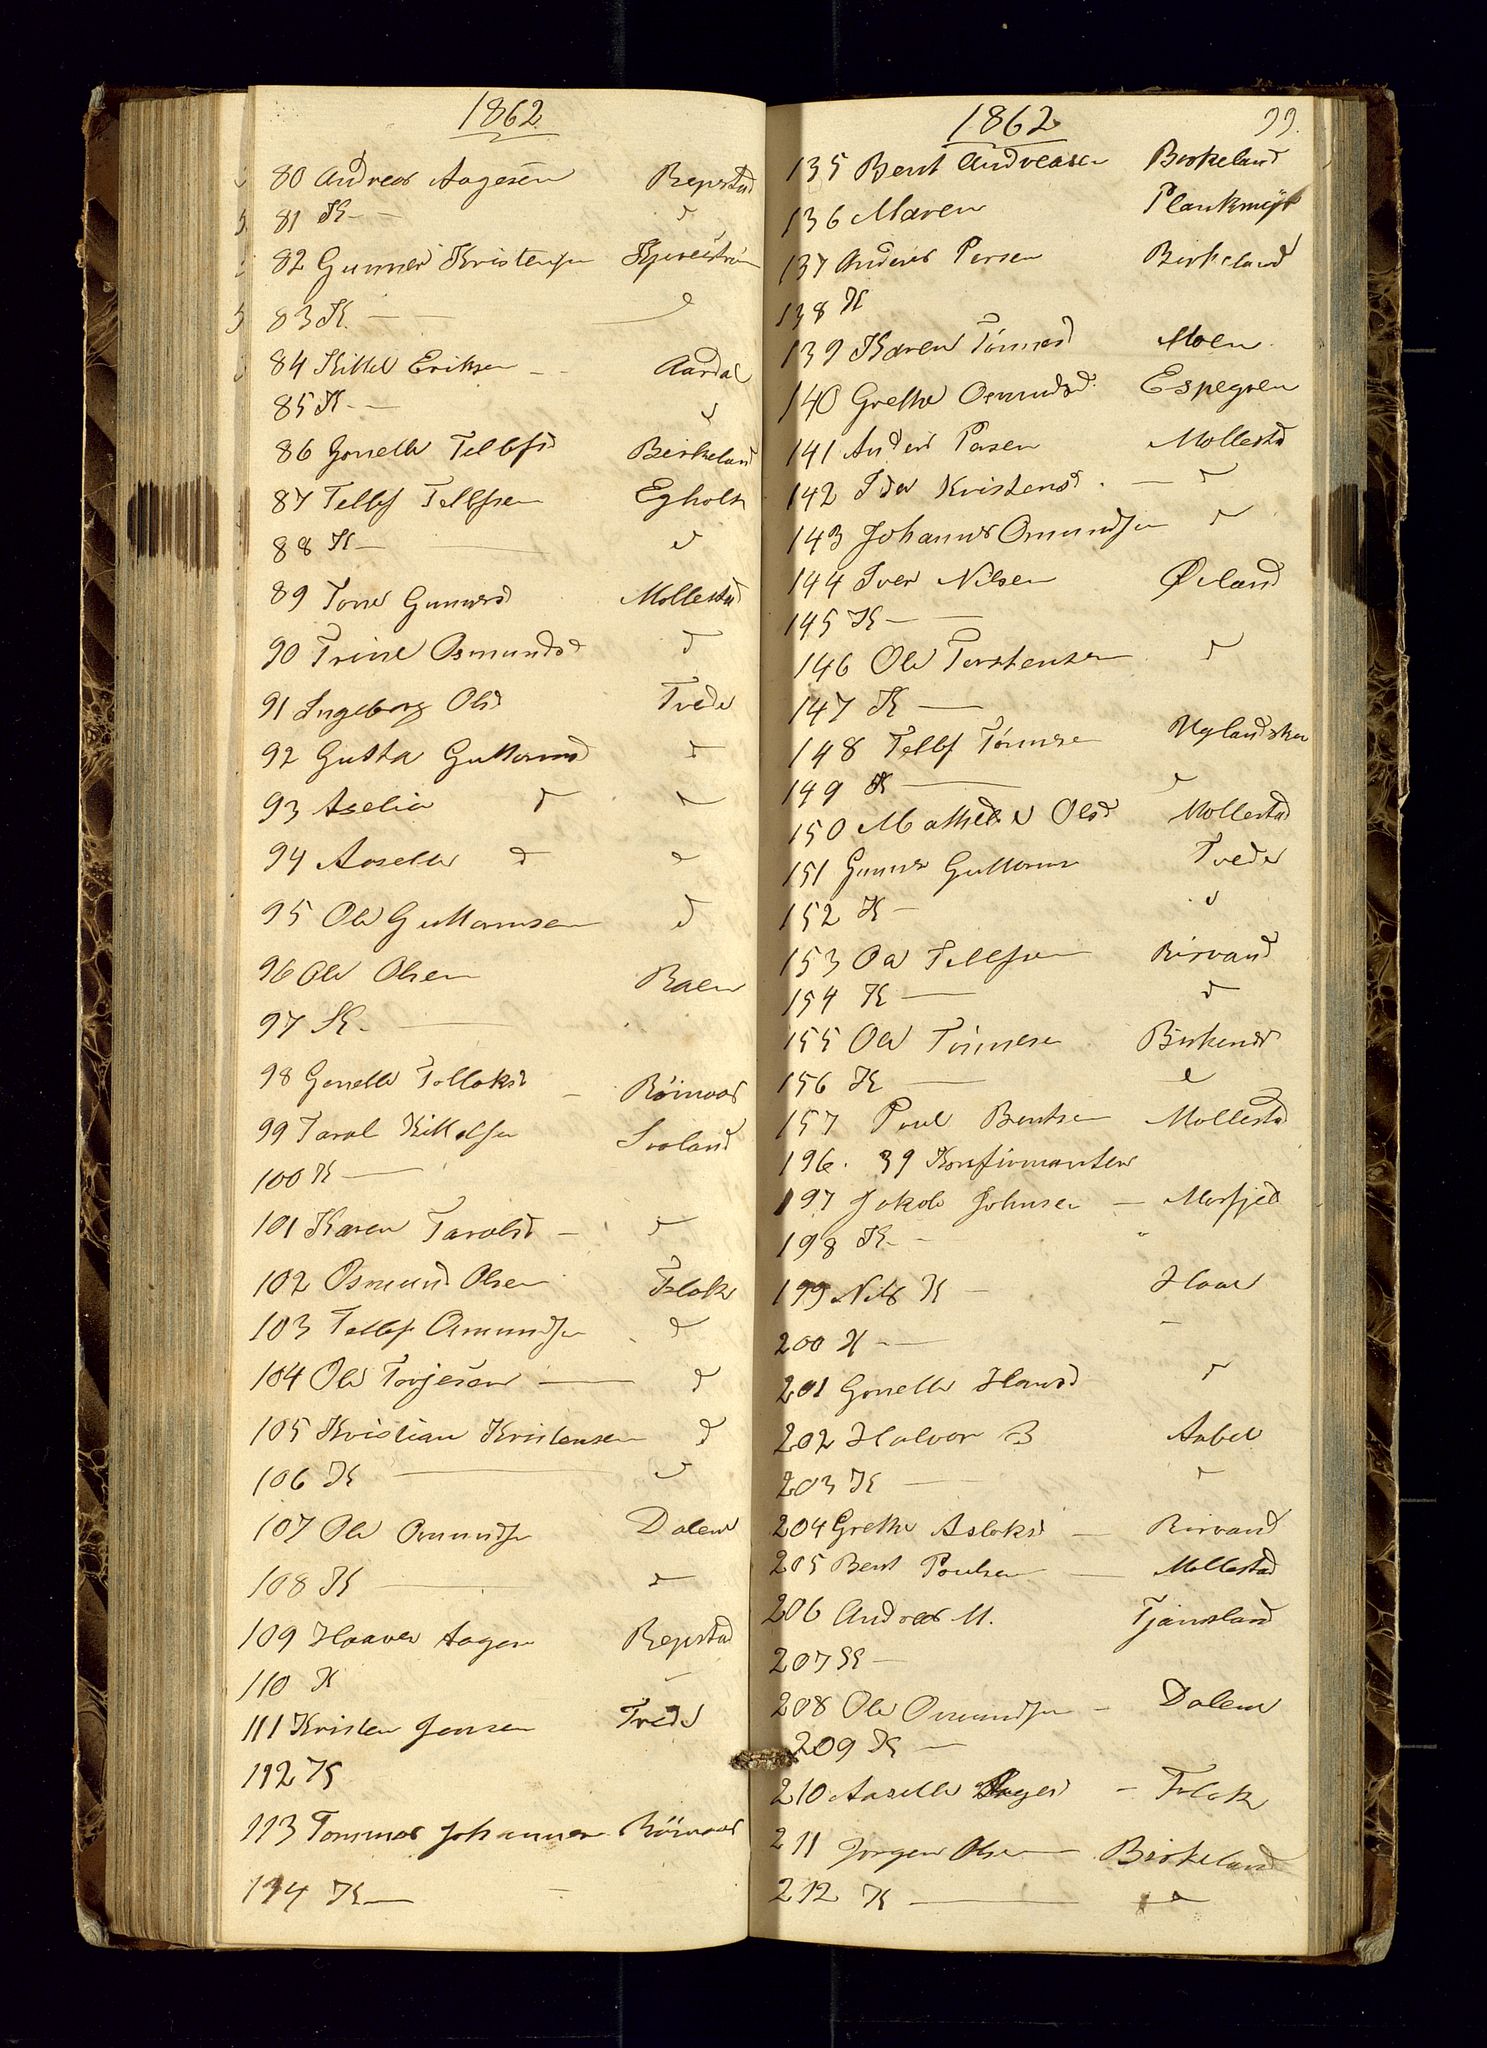 1862
80 Andreas Aagesen Repstad
81 K - - d
82 Gunner Kristensen
83 K. - - d
84 Kittel Eriksen - - Aardal
85 K - - d
86 Gonelle Tellefsd Birkeland
87 Tellef Tellefsen Egholt
88 K - d
89 Tone Gunnersd Mollestad
90 Trine Osmundsd d
91 Ingeborg Olsd Tvede
92 Gutta Guttormsd d
93 Aselia d d
94 Aaselle d d
95 Ole Guttormsen d
96 Ole Olsen Raen
97 K -
98 Gonelle Tellaksd - Röinaas
99 Taral Kittelsen Svaland
100 K -
101 Karen Taralsd - d
102 Osmund Olsen Flak
103 Tellef Osmundsen d
104 Ole Torjesen - d
105 Kristian Kristensen d
106 K - d
107 Ole Osmundsen Dalen
108 K - d
109 Haaver Aagesen Repstad
110 K -
111 Kristen Jensen Tvede
112 K
113 Tommas Johannesen Röinaas
114 K - -
1862 99.
135 Bent Andreasen Birkeland
136 Maren Plankmyr
137 Anders Persen Birkeland
138 K
139 Karen Tönnesd Moen
140 Grethe Osmundsd. Espegren
141 Anders Persen Mollestad
142 Ida Kristensd. - d
143 Johannes Omundsen d
144 Iver Nilsen Øvland
145 K - -
146 Ole Torstensen d
147 K -
148 Tellef Tönnesen
149 K - d
150 Mathilde Olsd Mollestad
151 Gunner Guttormsen Tvede
152 K - d
153 Ole Tellefsen Risvand
154 K - d
155 Ole Tönnesen Birkenes
156 K - d
157 Poul Bentsen Mollestad
196. 39 Konfirmanter
197 Jakob Johnsen -
198 K - "
199 Nils K -
200 K - -
201 Gonelle Hansd d
202 Halvor B Aabel
203 K - d
204 Grethe Aslaksd - Risvand
205 Bent Poulsen - Mollestad
206 Andreas M. Tjamsland
207 K -
208 Ole Osmundsen - Dalen
209 K -
210 Aaselle Aagesd - Flak
211 Jörgen Olsen Birkeland
212 K - d